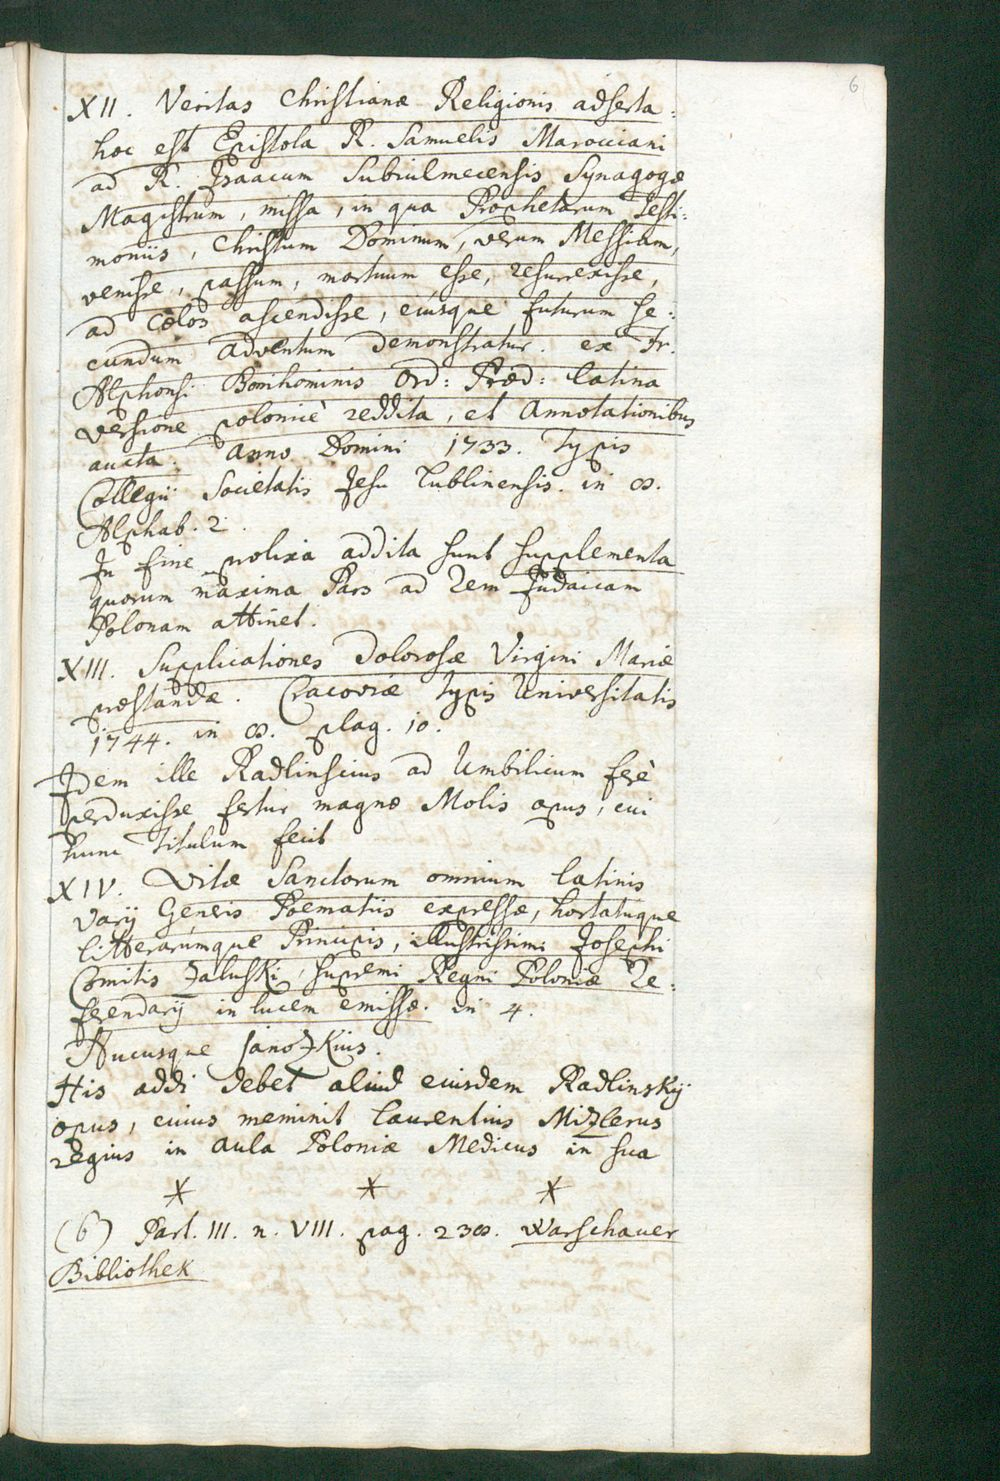 6
XII. Veritas Christianæ Religionis adserta.
hoc est Epistola R. Samuelis Marocciani
ad R. Isaacum Subiulmecensis Synagogæ
Magistrum, missa, in qua Prophetarum Testi:
moniis, Christum Dominum, verum Messiam,
venisse, passum, mortuum esse, resurrexisse,
ad cœlos ascendisse, eiusque futurum se:
cundum adventum demonstratur. ex Fr.
Alphonsi Bonihominis Ord: Præd: Latina
versione polonicè reddita, et Annotationibus
aucta. Anno Domini 1733. Typis
Collegii Societatis Jesu Lublinensis. in 8.
Alphab. 2.
In fine prolixa addita sunt supplementa
quorum maxima Pars ad rem Judaicam
Polonam attinet.
XIII. Supplicationes Dolorosæ Virgini Mariæ
præstandæ. Cracoviæ typis Universitatis
1744. in 8. plag. 10.
Idem ille Radlinscius ad Umbilicum ferè
perduxisse fertur magnæ Molis opus, cui
hunc titulum fecit
XIV. Vitæ Sanctorum omnium Latinis
varij Generis Poematiis expressæ, hortatuque
litterarumque Principis, illustrissimi Josephi
Comitis Zaluski, supremi Regni Poloniæ Re:
ferendarij in lucem emissæ. in 4.
Hucusque Janozkius.
His addi debet aliud eiusdem Radlinskij
opus, cuius meminit Laurentius Mizlerus
regius in Aula Poloniæ Medicus in sua
* * *
(6) Part. III. n. VIII. pag. 238. Warschauer
Bibliothek